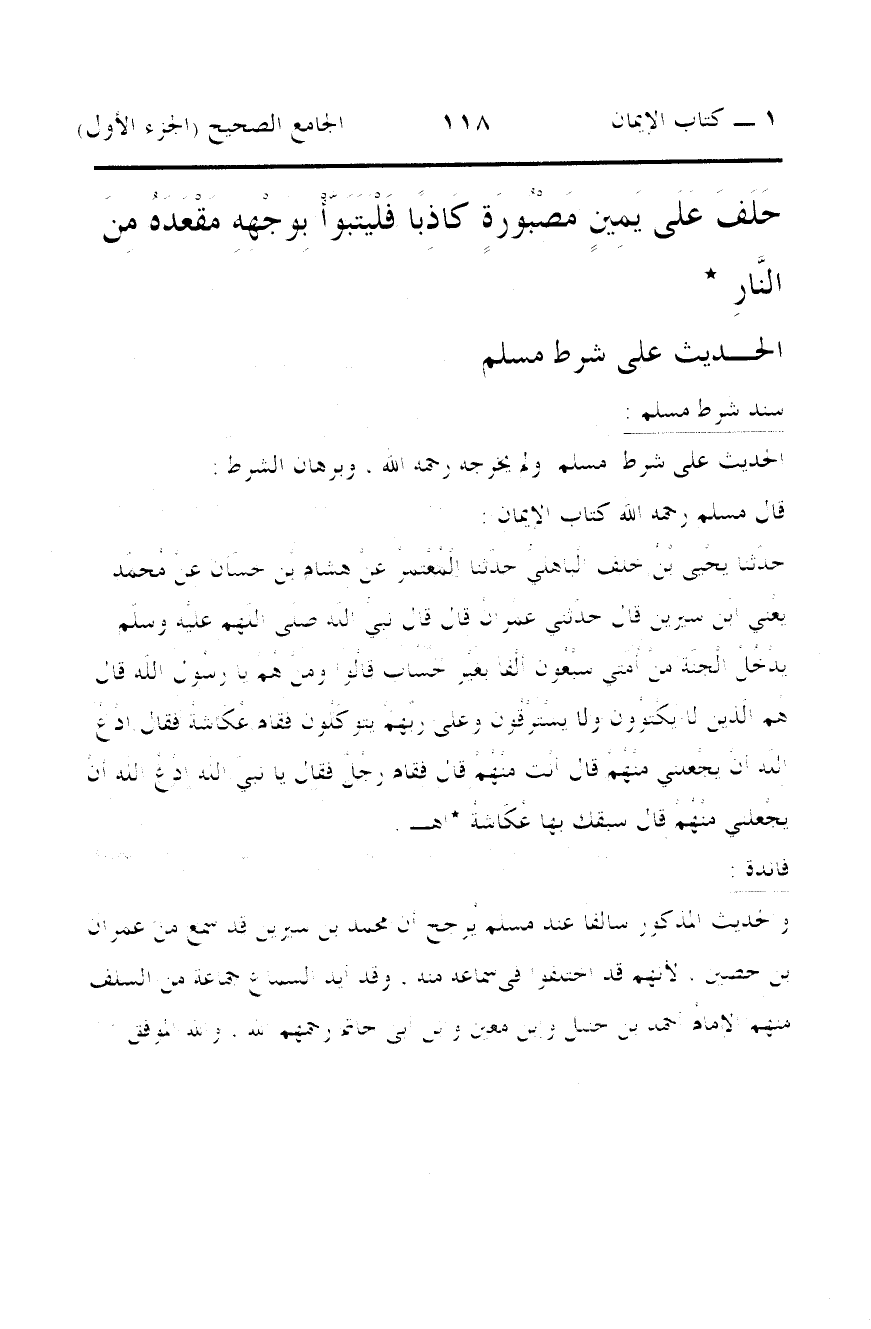 ١ ـــ كتاب الإيمان ١١٨ الجامع الصحيح (الجزء الأول)
حَلَفَ عَلَى يَمِينٍ مَصْبُورَةٍ كَاذِبًا فَلْيَتَبَوَّأْ بِوَجْهِهِ مَقْعَدَهُ مِنَ
النَّارِ *
الحـــديث على شرط مسلم
سند شرط مسلم :
الحديث على شرط مسلم ولم يخرجه رحمه الله . وبرهان الشرط :
قال مسلم رحمه الله كتاب الإيمان :
حدثنا يحْيى بْنُ خلف الْباهلي حدثنا الْمُعْتمرُ عنْ هشام بْن حسّان عنْ مُحمد
يعْني ابْن سيرين قال حدثني عمْرانُ قال قال نبيُّ الله صلى اللهم عليْه وسلّم
يدْخُلُ الْجنّة منْ أمتي سبْعُون ألْفا بغيْر حساب قالُوا ومنْ هُمْ يا رسُول الله قال
هُم الّذين لا يكْتوُون ولا يسْترْقُون وعلى ربّهمْ يتوكلُون فقام عُكّاشةُ فقال ادْعُ
الله أنْ يجْعلني منْهُمْ قال أنْت منْهُمْ قال فقام رجُلٌ فقال يا نبيّ الله ادْعُ الله أنْ
يجْعلني منْهُمْ قال سبقك بها عُكّاشةُ *اهـــ .
فائدة :
والحديث المذكور سالفا عند مسلم يُرجح أن محمد بن سيرين قد سمع من عمران
بن حصين . لأنهم قد اختلفوا في سماعه منه . وقد أيد السماع جماعة من السلف
منهم الإمامُ أحمد بن حنبل وابن معين وابن أبى حاتم رحمهم الله . والله الموفق